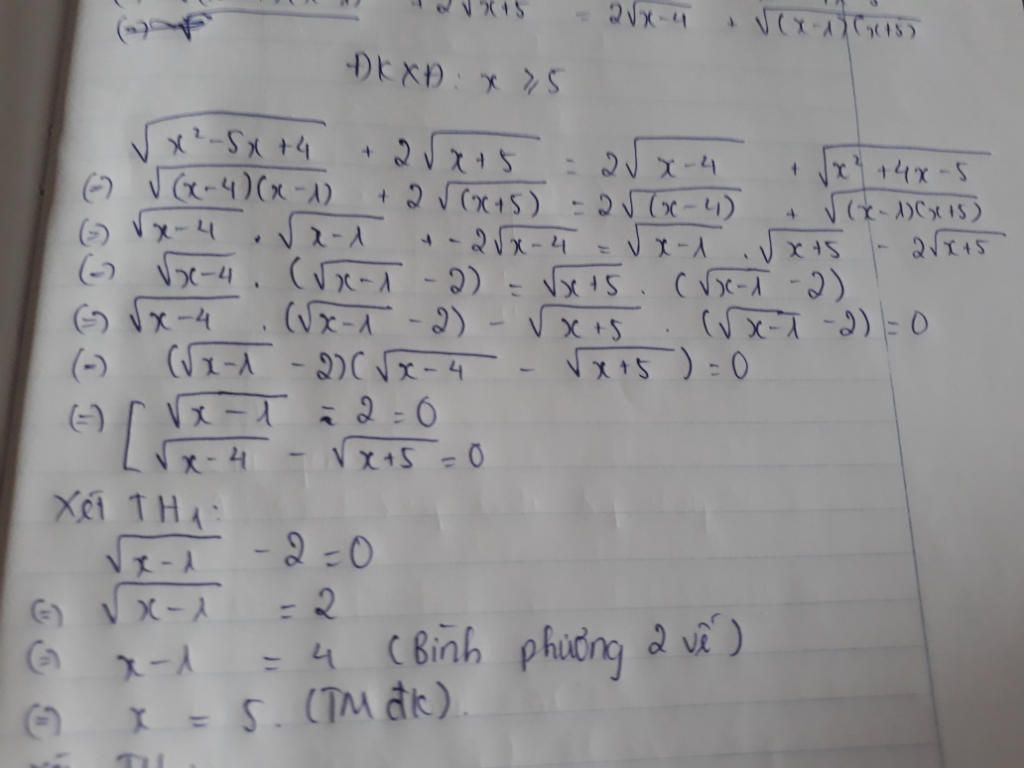 + 2√x+5 = 2√x-4 + √(x-1)(x+5)
(=)
ĐKXĐ: x ⩾ 5
√x²-5x+4 + 2√x+5 = 2√x-4 + √x²+4x-5
(=) √(x-4)(x-1) + 2√(x+5) = 2√(x-4) + √(x-1)(x+5)
(=) √x-4 . √x-1 + -2√x-4 = √x-1 . √x+5 - 2√x+5
(=) √x-4 . (√x-1 - 2) = √x+5 . (√x-1 - 2)
(=) √x-4 . (√x-1 - 2) - √x+5 . (√x-1 - 2) = 0
(=) (√x-1 - 2)(√x-4 - √x+5) = 0
(=) [ √x-1 - 2 = 0
√x-4 - √x+5 = 0
Xét TH1:
√x-1 - 2 = 0
(=) √x-1 = 2
(=) x-1 = 4 (Bình phương 2 vế)
(=) x = 5. (TM đk).